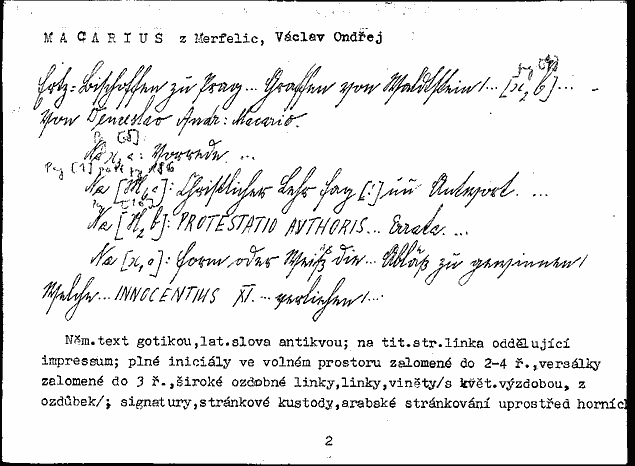 MACARIUS z Merfelic, Václav Ondřej
Ertz-Bischoffen zu Prag... Graffen von Waldstein/...[x₂b]...
Von Wenceslao Andr: Macario.
Na x₃a: Vorrede ...
Na [M₆a]: Christlicher Lehr Frag [:] und Antwort. ...
Na [N₂b]: PROTESTATIO AVTHORIS... Errata. ...
Na [x₁a]: Form oder Weiß die... Abläß zu gewinnen/
Welche... INNOCENTIUS XI. ... verliehen/...
Něm.text gotikou,lat.slova antikvou; na tit.str.linka oddělující
impressum; plné iniciály ve volném prostoru zalomené do 2-4 ř.,versálky
zalomené do 3 ř.,široké ozdobné linky,linky,viněty/s květ.výzdobou, z
ozdůbek/; signatury,stránkové kustody,arabské stránkování uprostřed horních
2